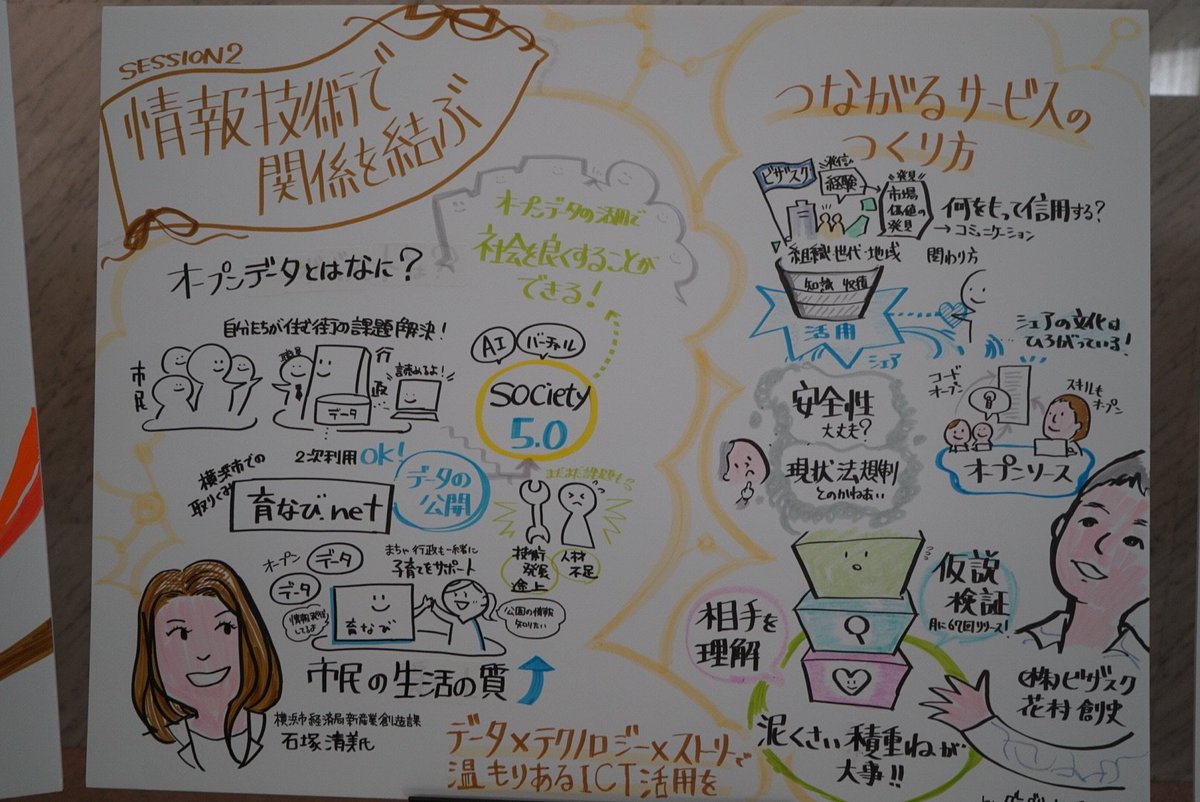 SESSION2
情報技術で
関係を結ぶ
オープンデータとはなに？
オープンデータの活用で
社会を良くすることが
できる！
自分たちが住む街の課題解決！
市民
職員
行政
データ
読めるよ！
AI
バーチャル
society
5.0
2次利用OK！
横浜市での
取りくみ
育なび.net
データの
公開
まだまだ課題も
技術
発展
途上
人材
不足
オープン
データ
データ
情報発信
してるよ
まちや行政も一緒に
子育てをサポート
育なび
公園の情報
知りたい
市民の生活の質
横浜市経済局新産業創造課
石塚清美氏
データ×テクノロジー×ストーリーで
温もりあるICT活用を
つながるサービスの
つくり方
ビザスク
発信
経験
発見
市場
価値の
発見
何をもって信用する？
→コミュニケーション
組織・世代・地域
関わり方
知識
活用
シェア
シェアの文化は
ひろがっている！
安全性
大丈夫？
現状法規制
とのかねあい
コード
オープン
スキルも
オープン
オープンソース
相手を
理解
仮説
検証
月に67回リリース！
泥くさい積重ねが
大事!!
(株)ビザスク
花村創史